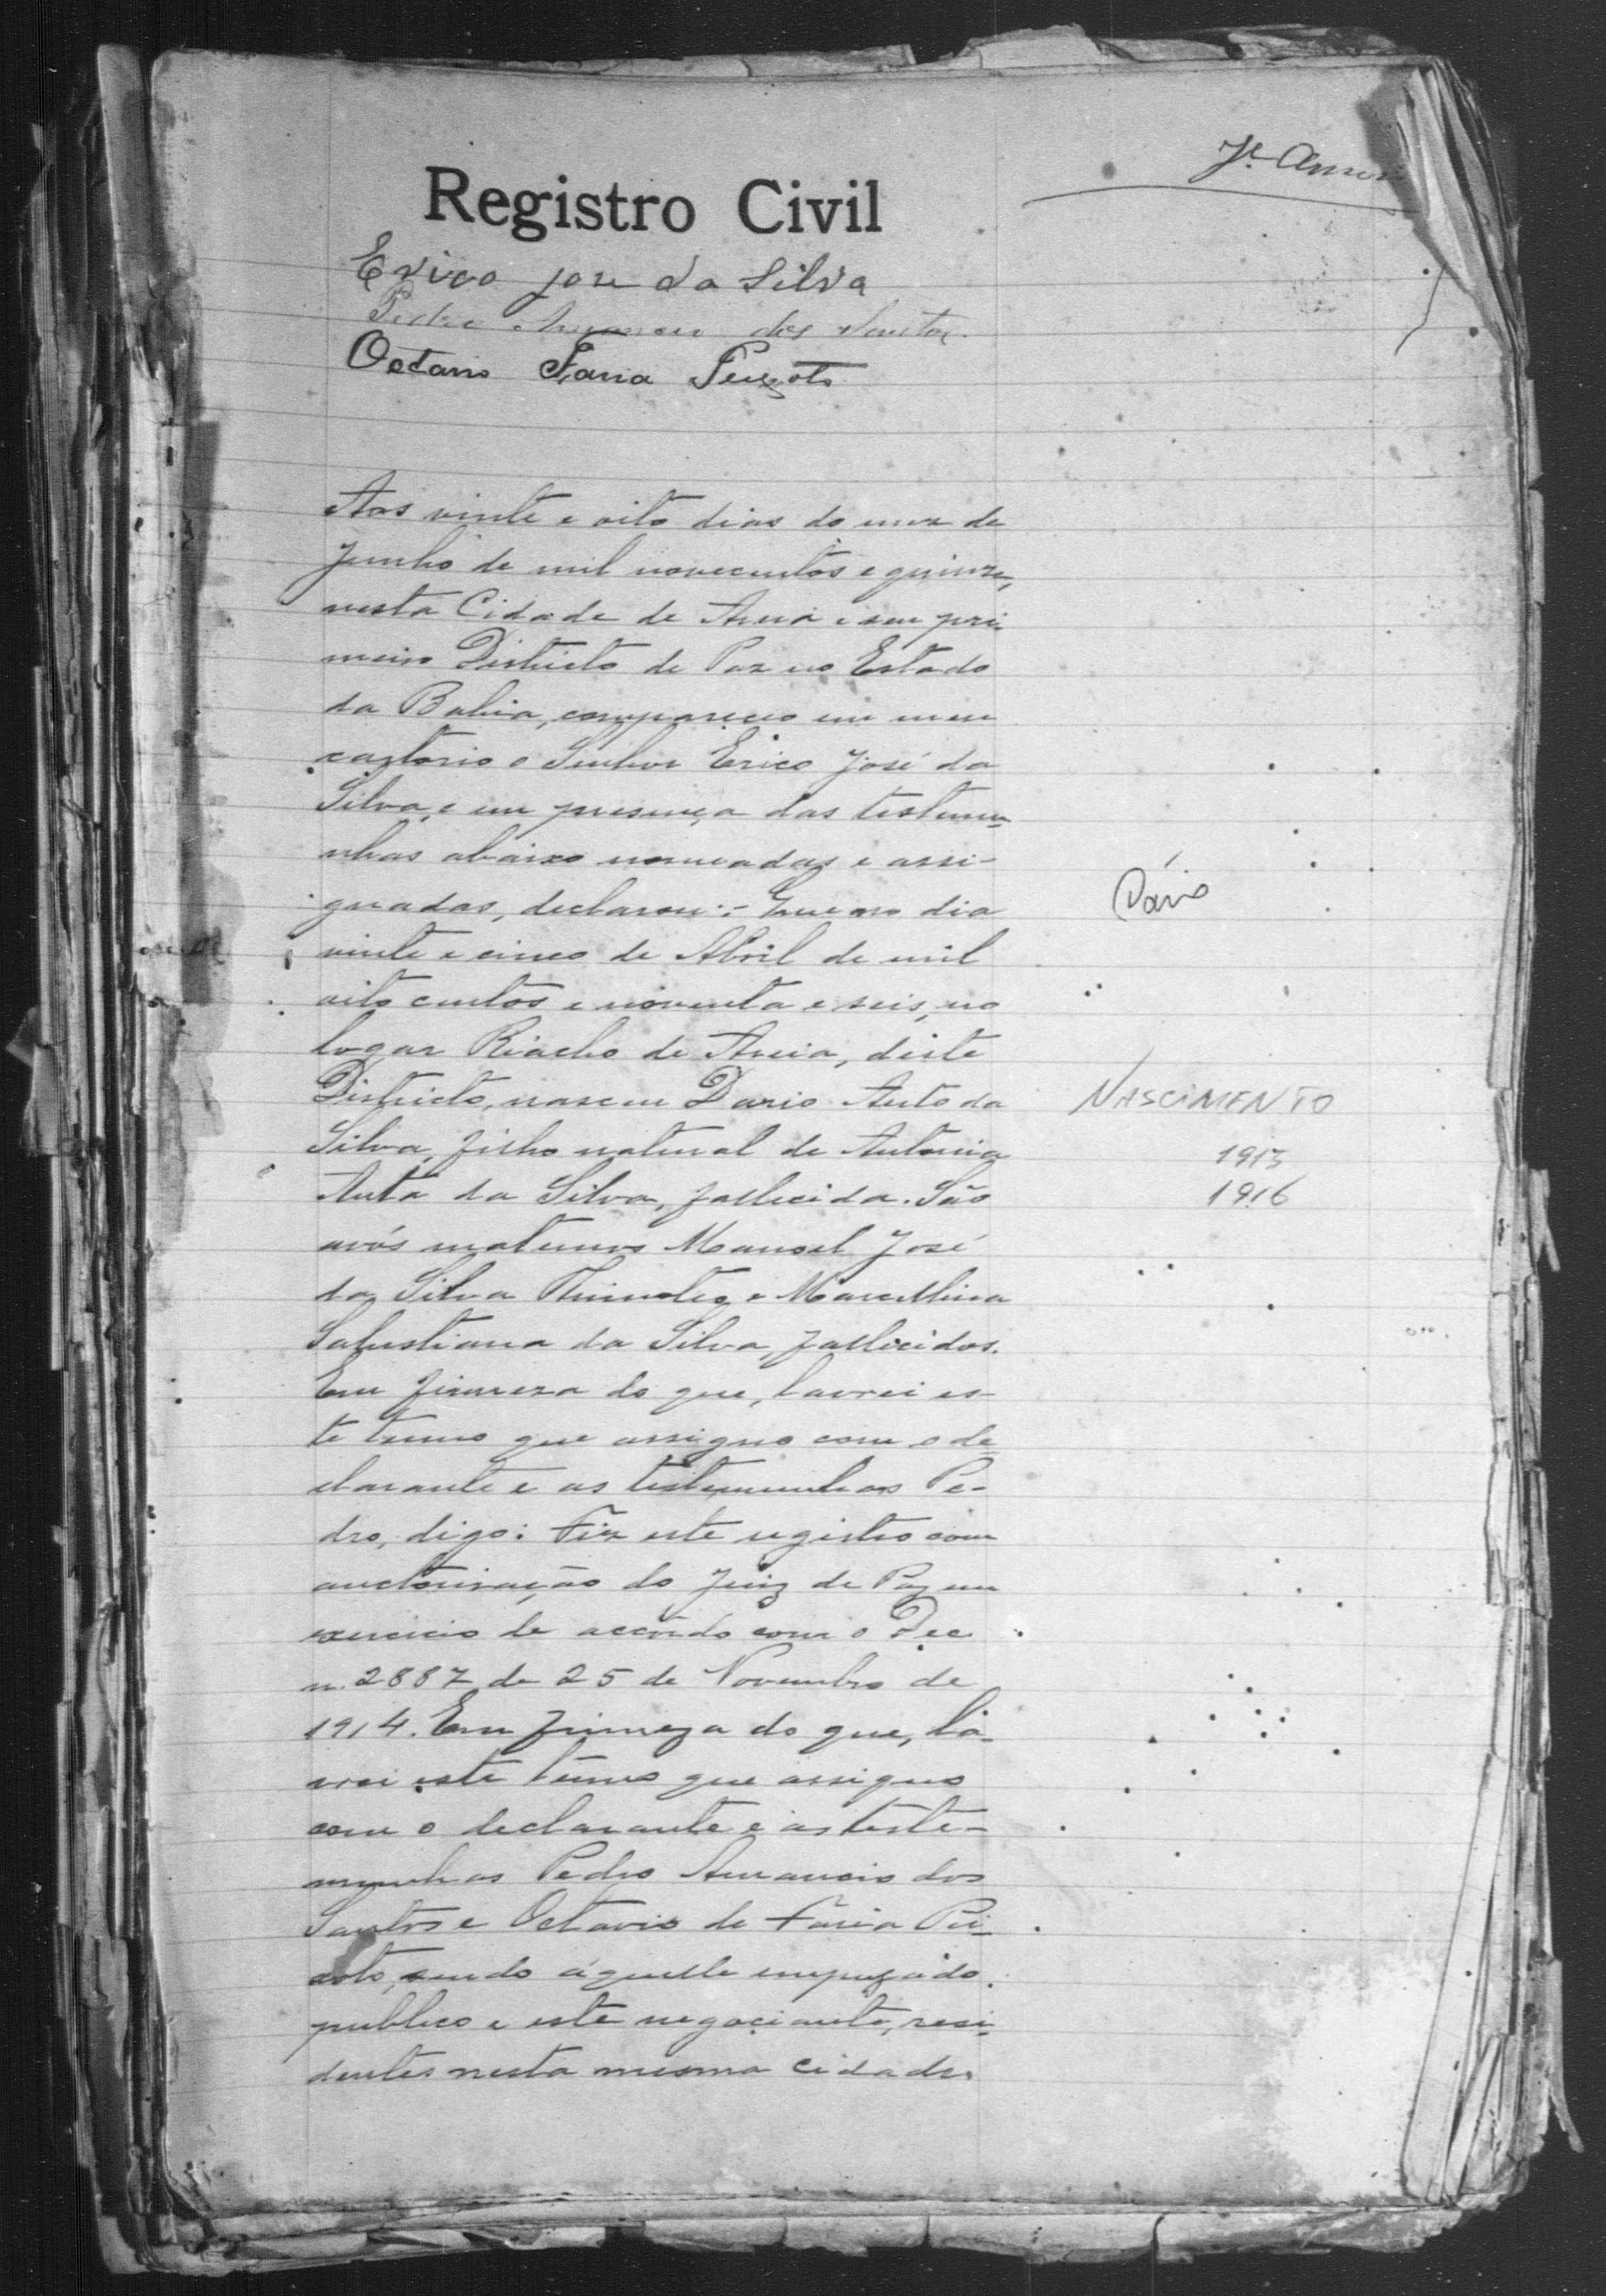 Registro Civil
Erico jose da Silva
Pedro Amancio dos Santos.
Octavio Faria Peixoto
Aos vinte e oito dias do mez de
Junho de mil novecentos e quinze,
nesta Cidade de Areia e seu pri-
meiro Districto de Paz no Estado
da Bahia, compareceo em meu
cartorio o Senhor Erico José da
Silva, e em presença das testemu-
nhas abaixo nomeadas e assi-
gnadas, declarou:- Que no dia
vinte e cinco de Abril de mil
oito centos e noventa e seis, no
logar Riacho de Areia, deste
Districto, nasceu Dario Auto da
Silva, filho natural de Antonia
Auta da Silva, fallecida. São
avós maternos Manoel José
da Silva Thimoteo e Marcellina
Salustiana da Silva, fallecidos.
Em firmeza do que, lavrei es-
te termo que assigno com o de-
clarante e as testemunhas Pe-
dro, digo: Fiz este registro com
auctorisação do Juiz de Paz em
exercicio de accôrdo com o Dec
n. 2887 de 25 de Novembro de
1914. Em firmeza do que, la-
vrei este termo que assigno
com o declarante e as teste-
munhas Pedro Amancio dos
Santos e Octavio de Faria Pei-
xoto, sendo áquelle empregado
publico e este negociante, resi-
dentes nesta mesma cidade.
Dário
NASCIMENTO
1915
1916